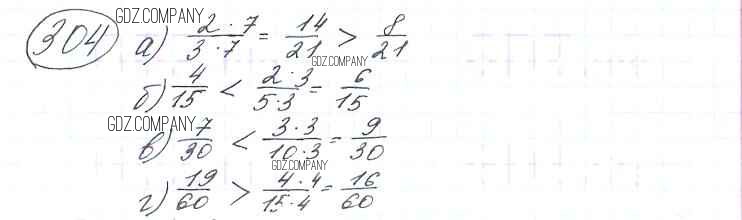 GDZ.COMPANY
304 а) 2·7/3·7 = 14/21 > 8/21
GDZ.COMPANY
б) 4/15 < 2·3/5·3 = 6/15
GDZ.COMPANY
в) 7/30 < 3·3/10·3 = 9/30
GDZ.COMPANY
г) 19/60 > 4·4/15·4 = 16/60